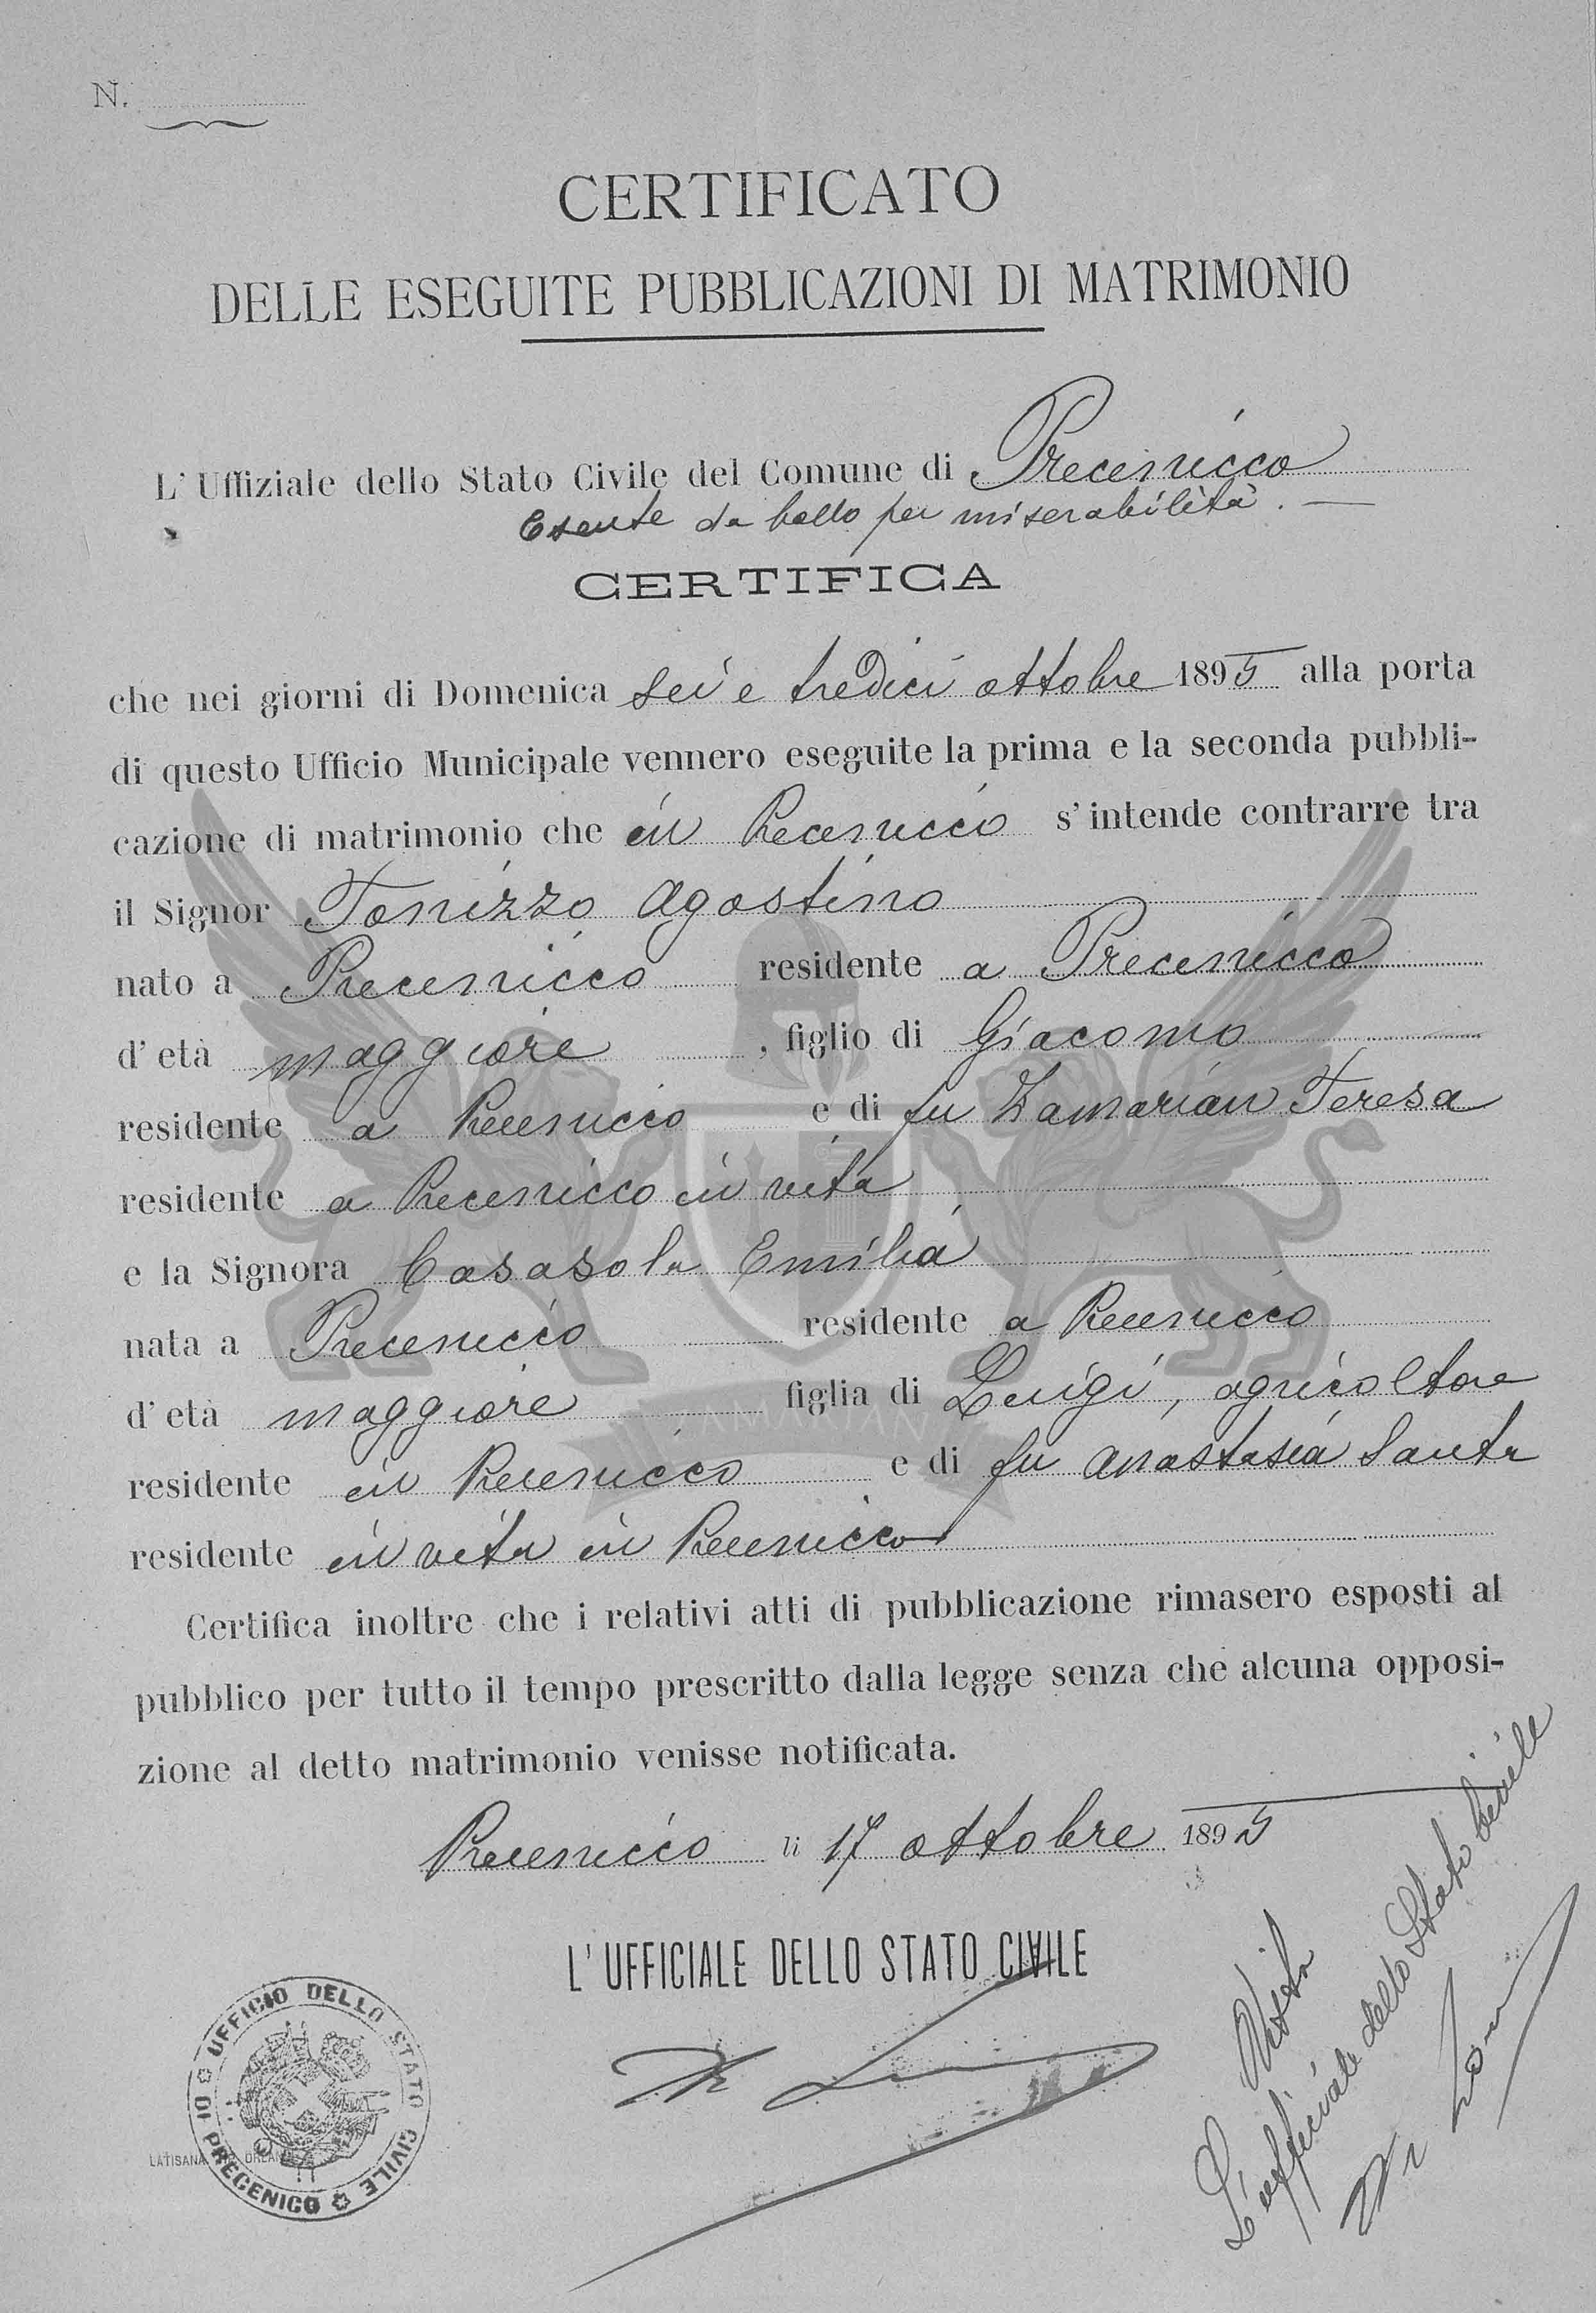 N.
CERTIFICATO
DELLE ESEGUITE PUBBLICAZIONI DI MATRIMONIO
L' Uffiziale dello Stato Civile del Comune di Precenicco
Esente da bollo per miserabilità. —
CERTIFICA
che nei giorni di Domenica sei e tredici ottobre 1895 alla porta
di questo Ufficio Municipale vennero eseguite la prima e la seconda pubbli-
cazione di matrimonio che in Precenicco s' intende contrarre tra
il Signor Tonizzo Agostino
nato a Precenicco residente a Precenicco
d' età maggiore, figlio di Giacomo
residente a Precenicco e di fu Zamarian Teresa
residente a Precenicco in vita
e la Signora Casasola Emilia
nata a Precenicco residente a Precenicco
d' età maggiore figlia di Luigi, agricoltore
residente in Precenicco e di fu Anastasia Santa
residente in vita in Precenicco
Certifica inoltre che i relativi atti di pubblicazione rimasero esposti al
pubblico per tutto il tempo prescritto dalla legge senza che alcuna opposi-
zione al detto matrimonio venisse notificata.
Precenicco li 17 ottobre 1895
L' UFFICIALE DELLO STATO CIVILE
Visto
L'ufficiale dello Stato Civile
UFFICIO DELLO STATO CIVILE
DI PRECENICO
LATISANA